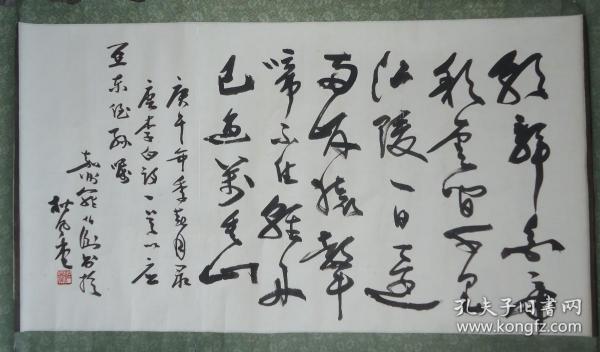 朝辞白帝
彩云间千里
江陵一日还
两岸猿声
啼不住轻舟
已过万重山
庚午年季春月录
唐李白诗一首以应
亚东侄孙嘱
秋风堂
孔夫子旧书网
www.kongfz.com